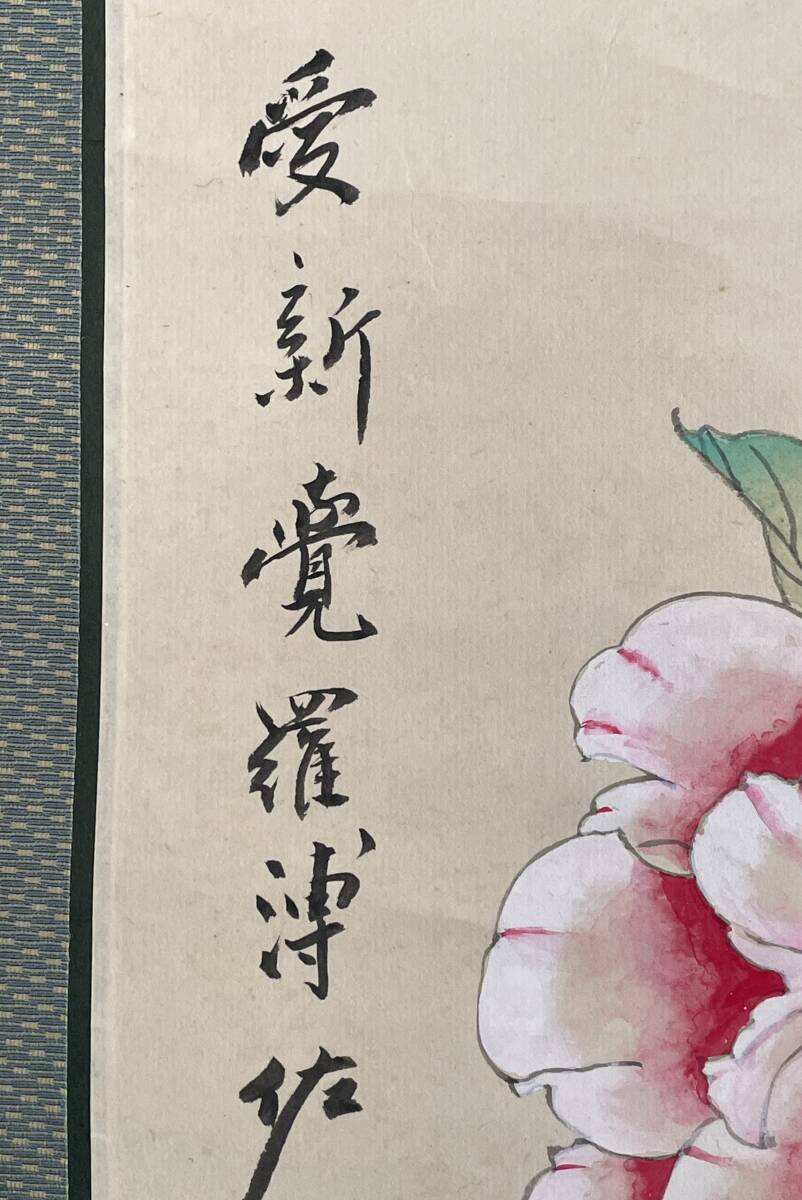 愛新覺羅溥佐